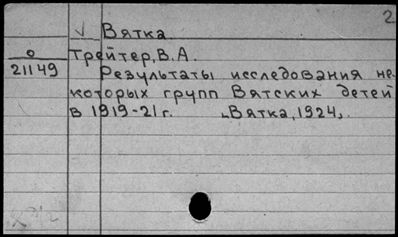 2
√ Вятка.
о Трейтер, В.А.
21149 Результаты исследования не-
которых групп Вятских детей
в 1919-21 г. „Вятка, 1924„.